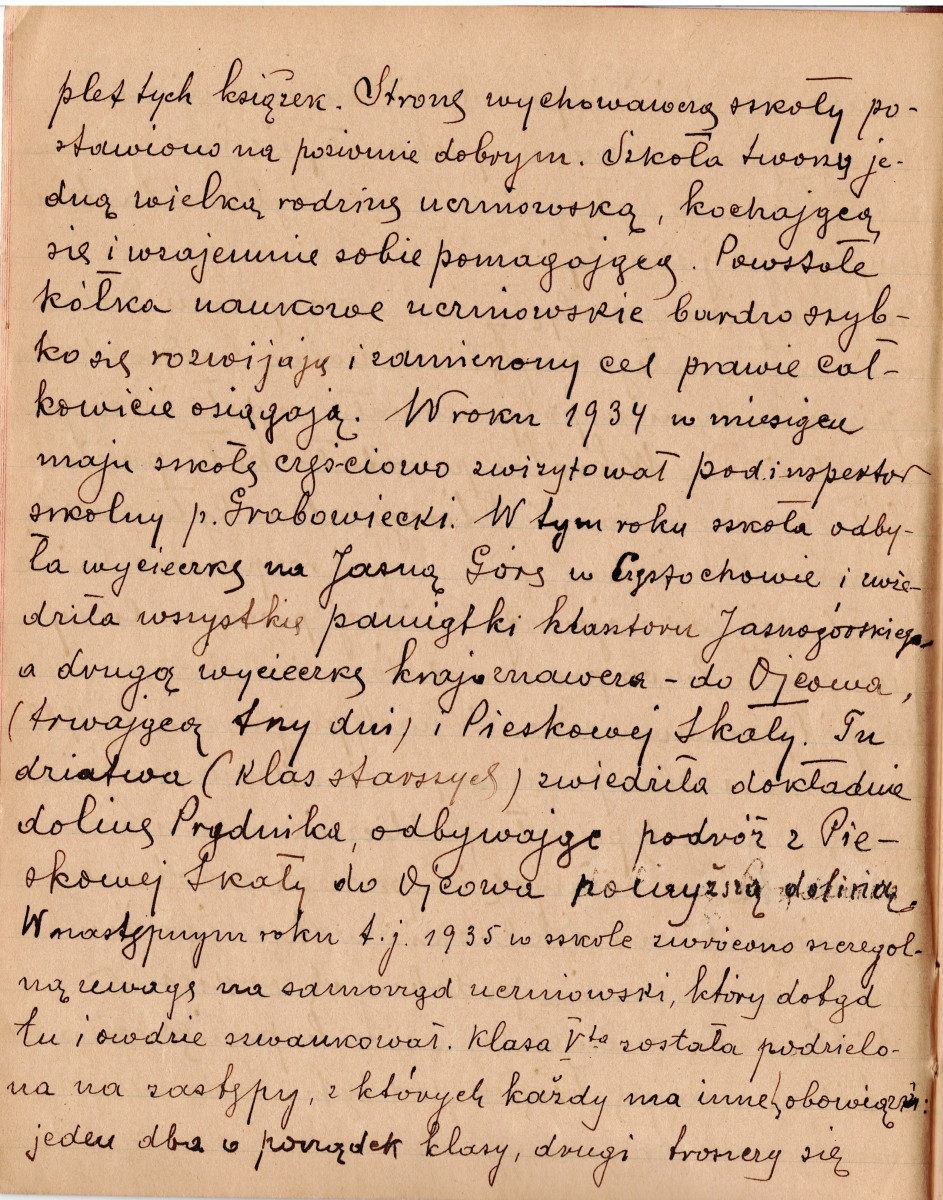 plet tych książek. Stronę wychowawczą szkoły po-
stawiono na poziomie dobrym. Szkoła tworzy je-
dną wielką rodzinę uczniowską, kochającą
się i wzajemnie sobie pomagającą. Powstałe
kółka naukowe uczniowskie bardzo szyb-
ko się rozwijają i zamierzony cel prawie cał-
kowicie osiągają. W roku 1934 w miesiącu
maju szkołę częściowo zwizytował podinspektor
szkolny p. Grabowiecki. W tym roku szkoła odby-
ła wycieczkę na Jasną Górę w Częstochowie i zwie-
dziła wszystkie pamiątki klasztoru Jasnogórskiego
a drugą wycieczkę krajoznawczą - do Ojcowa,
(trwającą trzy dni) i Pieskowej Skały. Tu
dziatwa (klas starszych) zwiedziła dokładnie
dolinę Prądnika, odbywając podróż z Pie-
skowej Skały do Ojcowa powyższą doliną.
W następnym roku t.j. 1935 w szkole zwrócono szczegól-
ną uwagę na samorząd uczniowski, który dotąd
tu i owdzie szwankował. Klasa Vta została podzielo-
na na zastępy, z których każdy ma inne obowiązki:
jeden dba o porządek klasy, drugi troszczy się